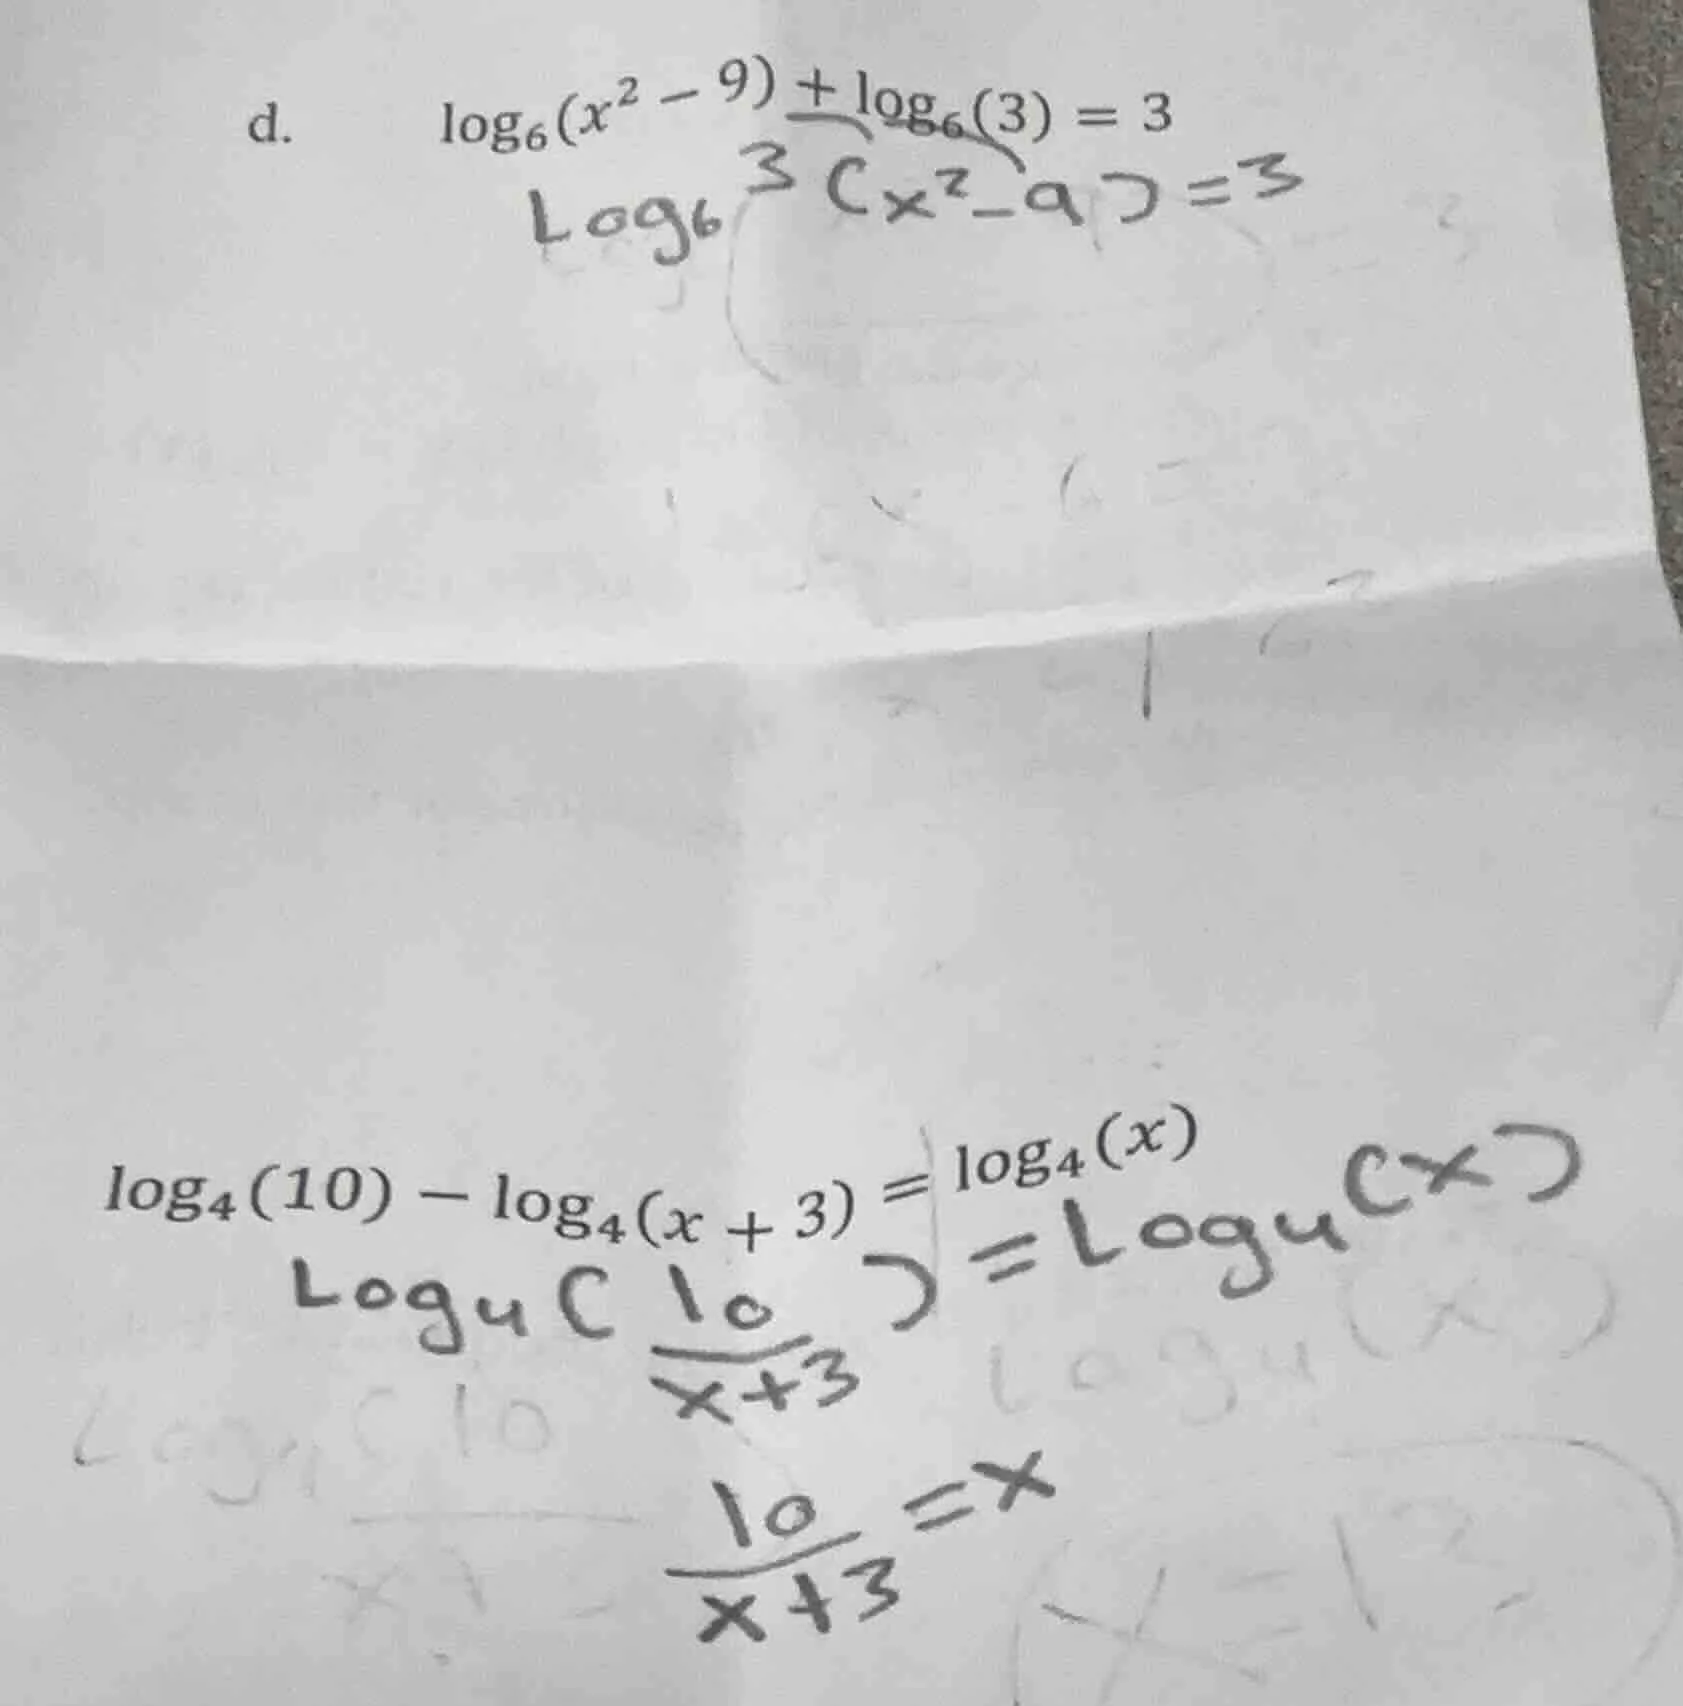 d. log₆(x² − 9) + log₆(3) = 3
Log₆ 3(x² - 9) = 3
log₄(10) − log₄(x + 3) = log₄(x)
Log₄(10/x+3) = Log₄(x)
Log₄(10 Log₄(x)
10/x+3 = x